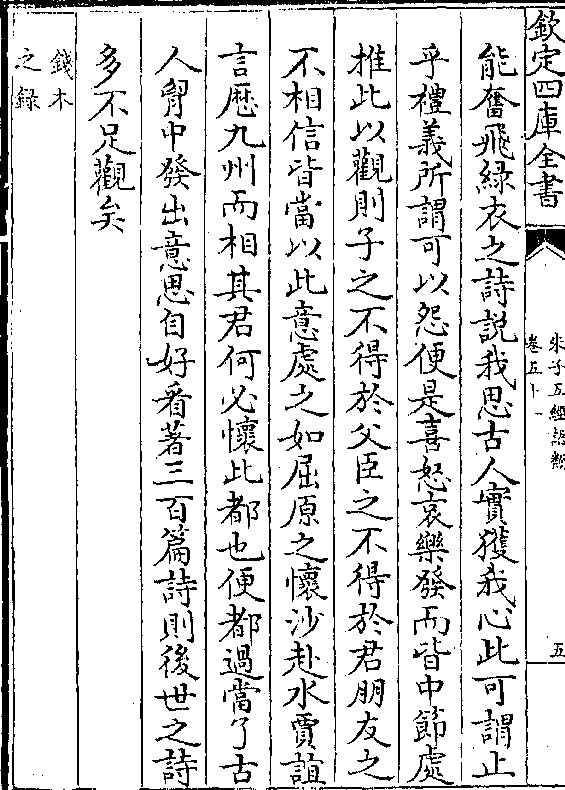 欽定四庫全書
朱子五經語類
卷五十一
五
能奮飛緑衣之詩說我思古人實獲我心此可謂止
乎禮義所謂可以怨便是喜怒哀樂發而皆中節處
推此以觀則子之不得於父臣之不得於君朋友之
不相信皆當以此意處之如屈原之懷沙赴水賈誼
言歴九州而相其君何必懷此都也便都過當了古
人胷中發出意思自好看著三百篇詩則後世之詩
多不足觀矣
錢木
之録